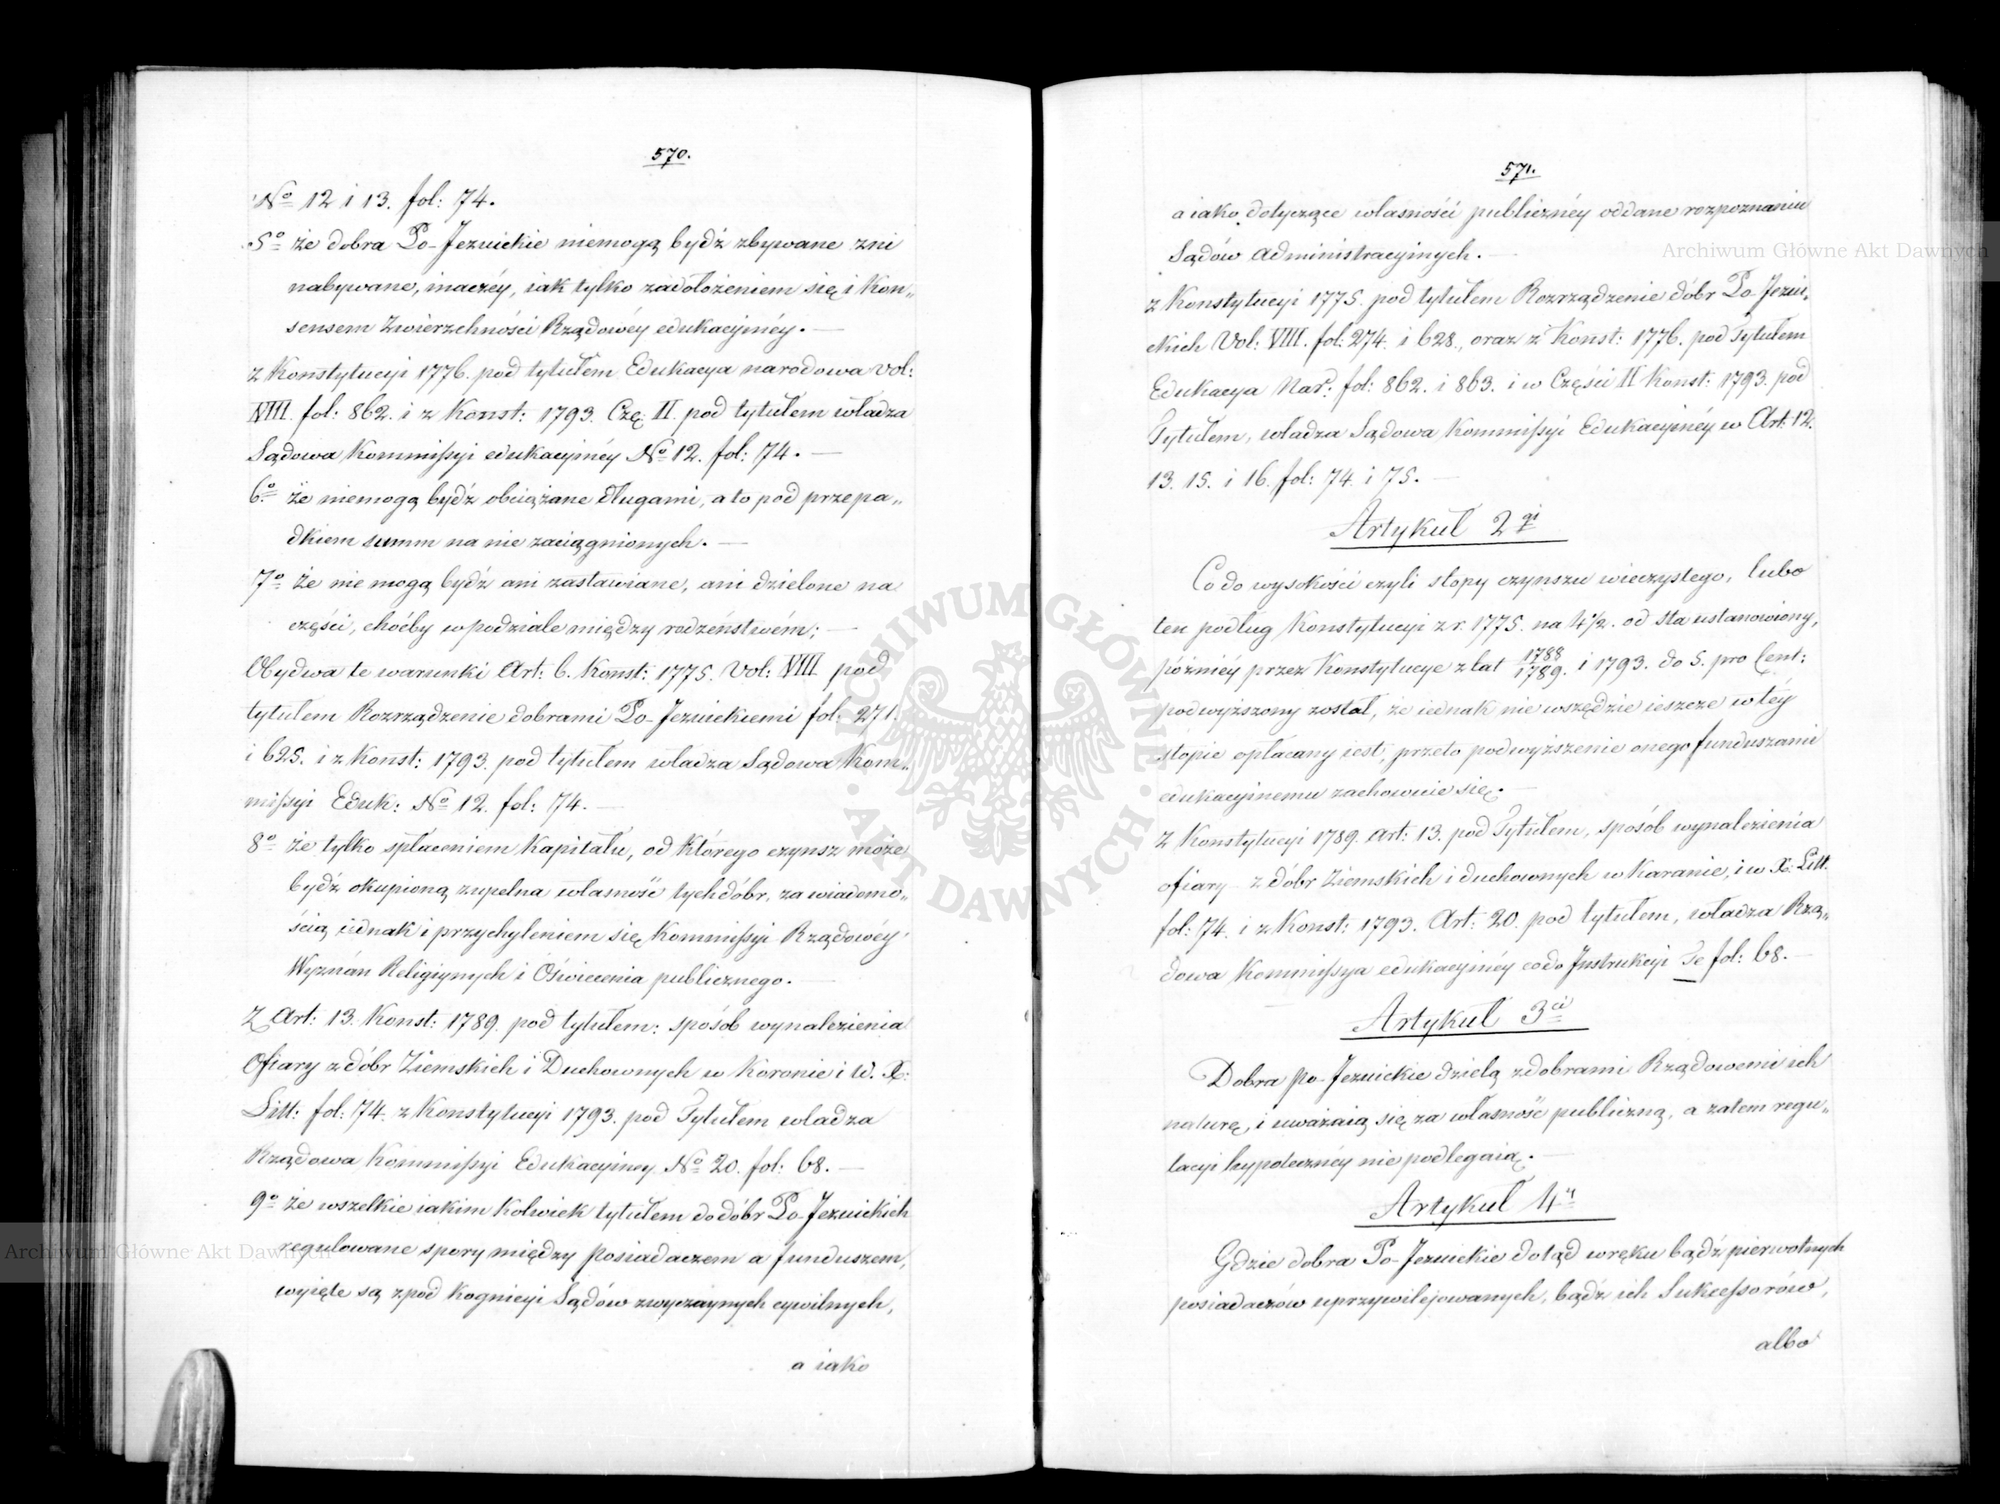 570.
No 12 i 13. fol: 74.
5o że dobra Po-Jezuickie niemogą bydź zbywane zni
nabywane, inaczéy, iak tylko zadołożeniem się i Kon„
sensem Zwierzchności Rządowéy edukacyinéy. —
z Konstytucyi 1776. pod tytułem Edukacya narodowa vol:
VIII. fol: 862. i z Konst: 1793. Czę: II. pod tytułem władza
Sądowa Kommissyi edukacyinéy No 12. fol: 74. —
6o że niemogą bydź obciążane długami, a to pod przepa„
dkiem summ na nie zaciągnionych. —
7o że nie mogą bydź ani zastawiane, ani dzielone na
części, choćby w podziale między rodzeństwém; —
Obydwa te warunki Art: 6. Konst: 1775. Vol: VIII pod
tytułem Rozrządzenie dobrami Po-Jezuickiemi fol: 271.
i 625. i z Konst: 1793. pod tytułem władza Sądowa Kom„
missyi Eduk: No 12. fol: 74. —
8o że tylko spłaceniem Kapitału, od którego czynsz może
bydź okupioną zupełna własność tych dóbr, za wiadomo„
ścią iednak i przychyleniem się Kommissyi Rządowéy
Wyznań Religiynych i Oświecenia publicznego. —
Z Art: 13. Konst: 1789. pod tytułem: sposób wynalezienia
Ofiary z dóbr Ziemskich i Duchownych w Koronie i W. X:
Litt: fol: 74. z Konstytucyi 1793. pod Tytułem władza
Rządowa Kommissyi Edukacyiney No 20. fol: 68. —
9o że wszelkie iakim kolwiek tytułem do dóbr Po-Jezuickich
regulowane spory między Posiadaczem a funduszem,
wyięte są zpod Kognicyi Sądów zwyczaynych cywilnych,
a iako
571.
a iako dotyczące własności publicznéy oddane rozpoznaniu
Sądów administracyinych. —
z Konstytucyi 1775. pod tytułem Rozrządzenie dóbr Po-Jezui„
ckich Vol: VIII. fol: 274. i 628., oraz z Konst: 1776. pod Tytułem
Edukacya Nard. fol: 862. i 863. i w Części II Konst: 1793. pod
Tytułem, władza Sądowa Kommissyi Edukacyinéy w Art: 12.
13. 15. i 16. fol: 74. i 75. —
Artykuł 2gi
Co do wysokości czyli stopy czynszu wieczystego, lubo
ten podług Konstytucyi z r. 1775. na 4 1/2. od sta ustanowiony,
późniéy przez Konstytucye z lat 1788/1789. i 1793. do 5. pro Cent:
podwyższony został, że iednak nie wszędzie ieszcze w téy
stopie opłacany iest, przeto podwyższenie onego funduszowi
edukacyinemu zachowuie się. —
z Konstytucyi 1789. Art: 13. pod Tytułem, sposób wynalezienia
ofiary z dóbr Ziemskich i duchownych w Koronie, i w X: Litt.
fol: 74. i z Konst: 1793. Art: 20. pod tytułem, władza Rzą„
dowa Kommissya edukacyinéy co do Instrukcyi Je fol: 68. —
Artykuł 3ci
Dobra po-Jezuickie dzielą z dobrami Rządowemi ich
naturę, i uważaią się za własność publiczną, a zatem regu„
lacyi hypoteczney nie podlegaią. —
Artykuł 4y
Gdzie dobra Po-Jezuickie dotąd w ręku bądź pierwotnych
posiadaczów uprzywilejowanych, bądź ich Sukcessorów,
albo
Archiwum Główne Akt Dawnych
Archiwum Główne Akt Dawnych
ARCHIWUM GŁÓWNE · AKT DAWNYCH ·